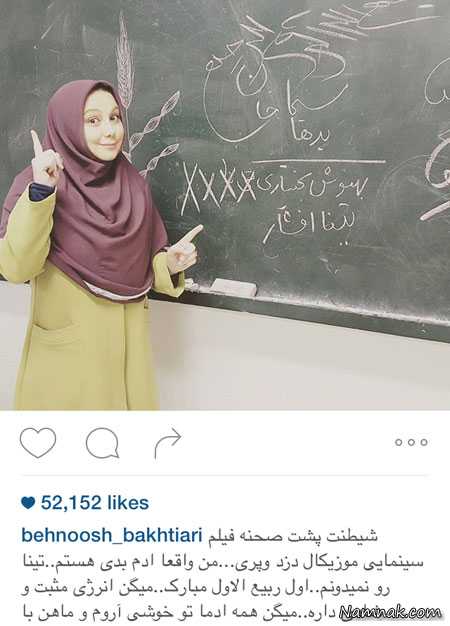 بدها
بهنوش بختیاری XXXX
تینا
52,152 likes
behnoosh_bakhtiari شیطنت پشت صحنه فیلم
سینمایی موزیکال دزد وپری...من واقعا ادم بدی هستم..تینا
رو نمیدونم..اول ربیع الاول مبارک..میگن انرژی مثبت و
داره..میگن همه ادما تو خوشی آروم و ماهن با
Namnak.com